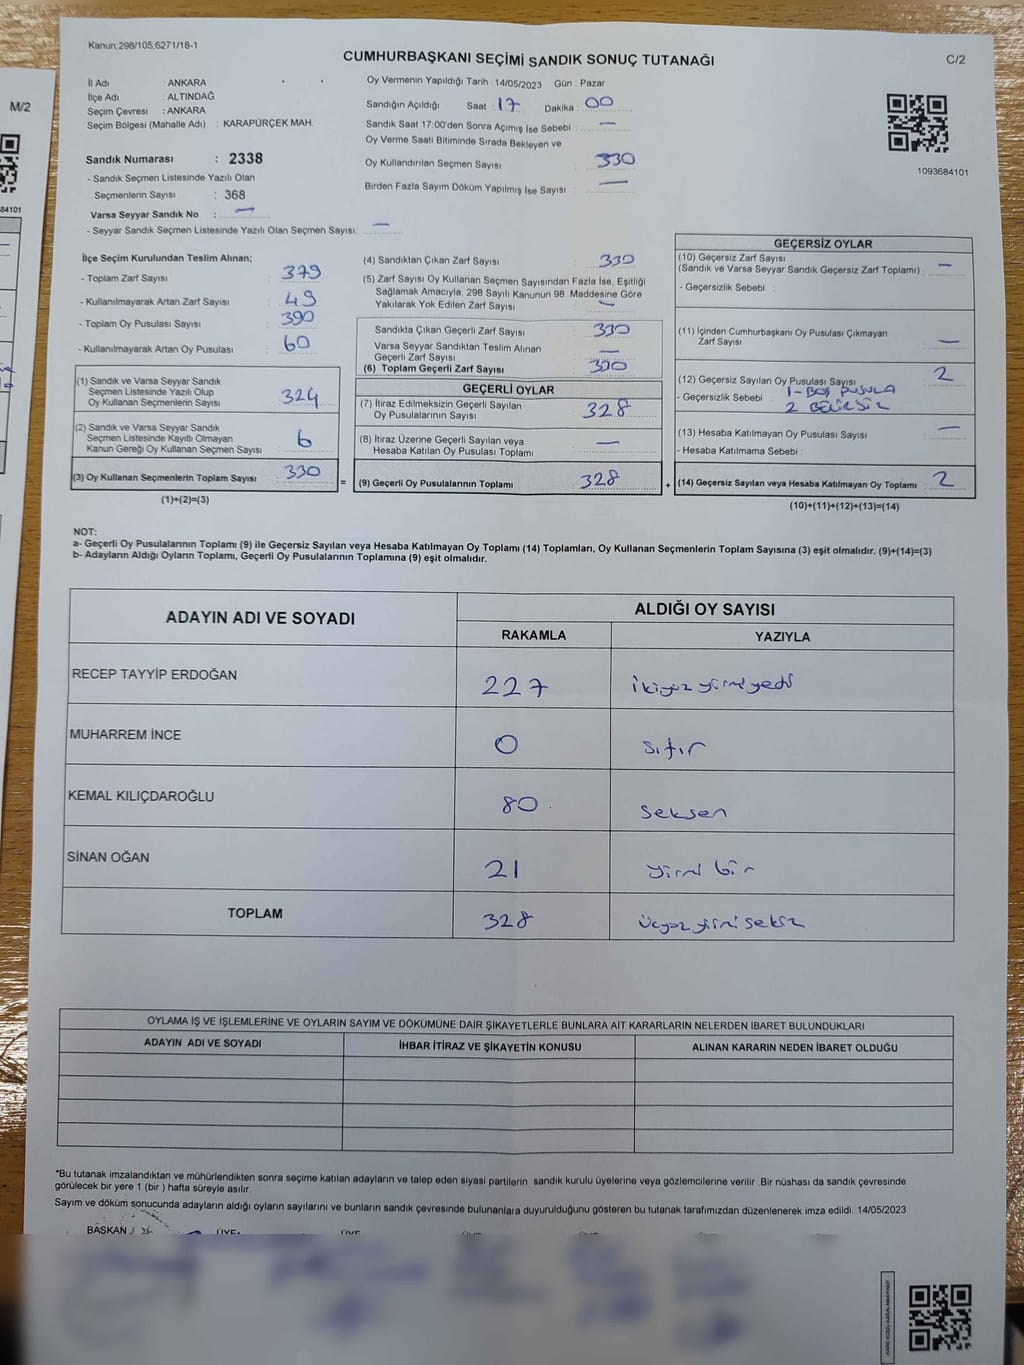 Kanun;298/105;6271/18-1
CUMHURBAŞKANI SEÇİMİ SANDIK SONUÇ TUTANAĞI
C/2
M/2
84101
İl Adı : ANKARA
İlçe Adı : ALTINDAĞ
Seçim Çevresi : ANKARA
Seçim Bölgesi (Mahalle Adı) : KARAPÜRÇEK MAH.
Oy Vermenin Yapıldığı Tarih : 14/05/2023 Gün : Pazar
Sandığın Açıldığı Saat : 17 Dakika : 00
Sandık Saat 17:00'den Sonra Açımış İse Sebebi : —
Oy Verme Saati Bitiminde Sırada Bekleyen ve
Oy Kullandırılan Seçmen Sayısı : 330
Birden Fazla Sayım Döküm Yapılmış İse Sayısı : —
1093684101
Sandık Numarası : 2338
- Sandık Seçmen Listesinde Yazılı Olan
Seçmenlerin Sayısı : 368
Varsa Seyyar Sandık No : —
- Seyyar Sandık Seçmen Listesinde Yazılı Olan Seçmen Sayısı: —
İlçe Seçim Kurulundan Teslim Alınan;
- Toplam Zarf Sayısı : 379
- Kullanılmayarak Artan Zarf Sayısı : 49
- Toplam Oy Pusulası Sayısı : 390
- Kullanılmayarak Artan Oy Pusulası : 60
(1) Sandık ve Varsa Seyyar Sandık
Seçmen Listesinde Yazılı Olup
Oy Kullanan Seçmenlerin Sayısı : 324
(2) Sandık ve Varsa Seyyar Sandık
Seçmen Listesinde Kayıtlı Olmayan
Kanun Gereği Oy Kullanan Seçmen Sayısı : 6
(3) Oy Kullanan Seçmenlerin Toplam Sayısı : 330
(1)+(2)=(3)
(4) Sandıktan Çıkan Zarf Sayısı : 330
(5) Zarf Sayısı Oy Kullanan Seçmen Sayısından Fazla İse, Eşitliği
Sağlamak Amacıyla; 298 Sayılı Kanunun 98. Maddesine Göre
Yakılarak Yok Edilen Zarf Sayısı : —
Sandıkta Çıkan Geçerli Zarf Sayısı : 330
Varsa Seyyar Sandıktan Teslim Alınan
Geçerli Zarf Sayısı : —
(6) Toplam Geçerli Zarf Sayısı : 330
GEÇERLİ OYLAR
(7) İtiraz Edilmeksizin Geçerli Sayılan
Oy Pusulalarının Sayısı : 328
(8) İtiraz Üzerine Geçerli Sayılan veya
Hesaba Katılan Oy Pusulası Toplamı : —
= (9) Geçerli Oy Pusulalarının Toplamı : 328 +
GEÇERSİZ OYLAR
(10) Geçersiz Zarf Sayısı
(Sandık ve Varsa Seyyar Sandık Geçersiz Zarf Toplamı) : —
- Geçersizlik Sebebi :
(11) İçinden Cumhurbaşkanı Oy Pusulası Çıkmayan
Zarf Sayısı : —
(12) Geçersiz Sayılan Oy Pusulası Sayısı : 2
- Geçersizlik Sebebi : 1-BOŞ PUSULA
2 BELİRSİZ
(13) Hesaba Katılmayan Oy Pusulası Sayısı : —
- Hesaba Katılmama Sebebi :
(14) Geçersiz Sayılan veya Hesaba Katılmayan Oy Toplamı : 2
(10)+(11)+(12)+(13)=(14)
NOT:
a- Geçerli Oy Pusulalarının Toplamı (9) ile Geçersiz Sayılan veya Hesaba Katılmayan Oy Toplamı (14) Toplamları, Oy Kullanan Seçmenlerin Toplam Sayısına (3) eşit olmalıdır. (9)+(14)=(3)
b- Adayların Aldığı Oyların Toplamı, Geçerli Oy Pusulalarının Toplamına (9) eşit olmalıdır.
ADAYIN ADI VE SOYADI ALDIĞI OY SAYISI
RAKAMLA YAZIYLA
RECEP TAYYİP ERDOĞAN 227 ikiyüz yirmi yedi
MUHARREM İNCE 0 sıfır
KEMAL KILIÇDAROĞLU 80 seksen
SİNAN OĞAN 21 yirmi bir
TOPLAM 328 üçyüz yirmi sekiz
OYLAMA İŞ VE İŞLEMLERİNE VE OYLARIN SAYIM VE DÖKÜMÜNE DAİR ŞİKAYETLERLE BUNLARA AİT KARARLARIN NELERDEN İBARET BULUNDUKLARI
ADAYIN ADI VE SOYADI İHBAR İTİRAZ VE ŞİKAYETİN KONUSU ALINAN KARARIN NEDEN İBARET OLDUĞU
*Bu tutanak imzalandıktan ve mühürlendikten sonra seçime katılan adayların ve talep eden siyasi partilerin sandık kurulu üyelerine veya gözlemcilerine verilir .Bir nüshası da sandık çevresinde
görülecek bir yere 1 (bir ) hafta süreyle asılır.
Sayım ve döküm sonucunda adayların aldığı oyların sayılarını ve bunların sandık çevresinde bulunanlara duyurulduğunu gösteren bu tutanak tarafımızdan düzenlenerek imza edildi. 14/05/2023
BAŞKAN ÜYE ÜYE